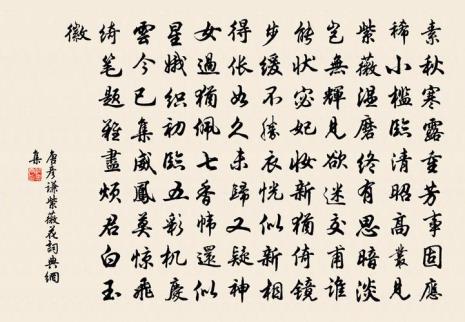 素秋寒露重芳事固應
稀小槛臨清昭高叢見
紫薇温磨終有思暗淡
豈無輝見欲迷交甫誰
能状宓妃妝新猶倚镜
步缓不勝衣恍似新相
得伥如久未歸又疑神
女過猶佩七香帏還似
星娥織初臨五彩机慶
雲今已集威鳳莫惊飛
绮笔題難盡烦君白玉
徽
唐彦谦紫薇花詞典網
集